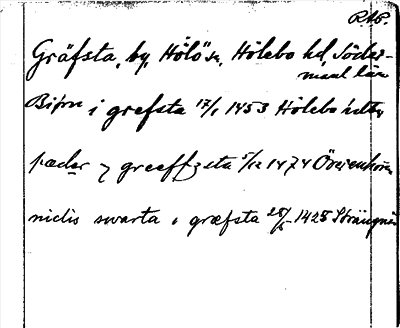 RAP.
Gräfsta, by, Hölö sn, Hölebo hd, Söder-
manl län
Biörn i grefsta 17/1 1453 Hölebo hdtg
pæder j greeffzsta 5/12 1474 Överenhörna
niclis swarta i græfsta 25/5 1425 Strängnäs